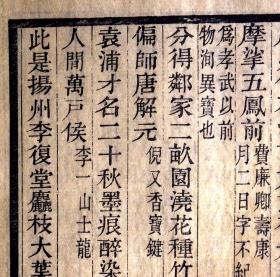 摩挲五鳳前 費廉卿壽康
月二日字不紀
爲孝武以前
物洵異寶也
分得鄰家二畝園澆花種竹
偏師唐解元 倪又香寶鍵
袁浦才名二十秋墨痕醉染
人間萬戶侯 李一山士龍
此是揚州李復堂麤枝大葉